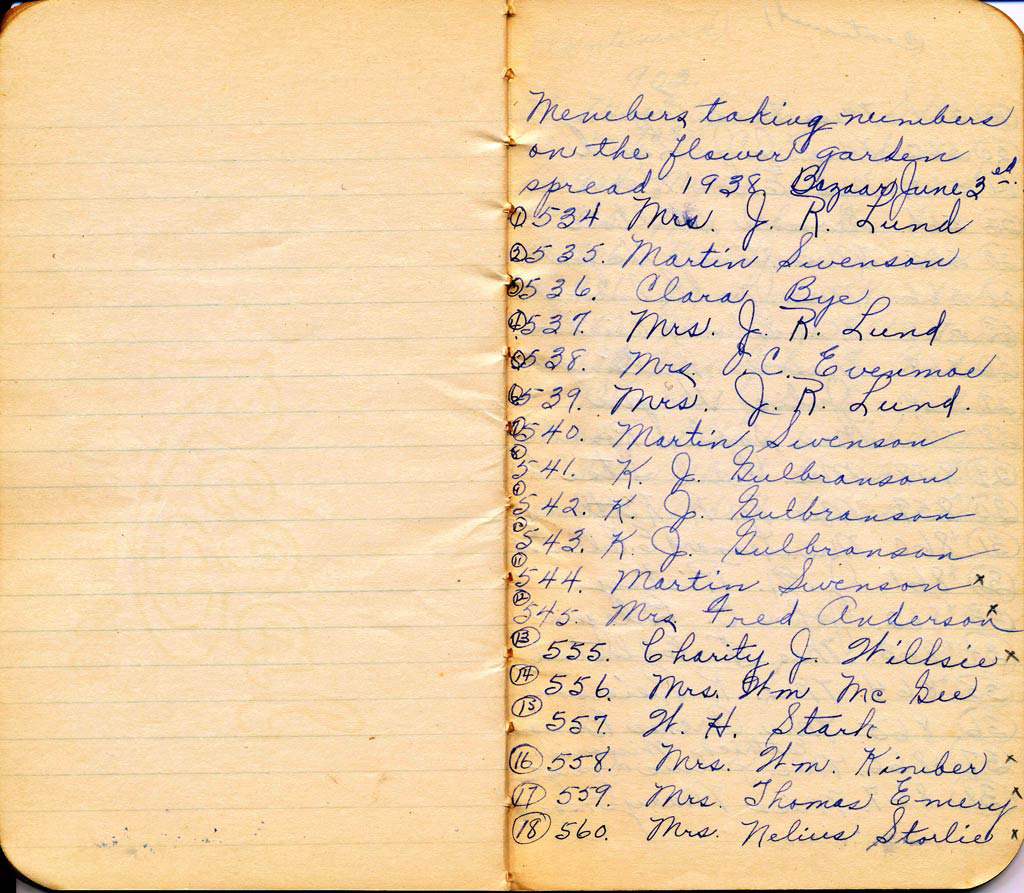 Members taking numbers
on the flower garden
spread 1938 Bazaar June 3rd.
① 534 Mrs. J. R. Lund
② 535. Martin Swenson
③ 536. Clara Bye
④ 537. Mrs. J. R. Lund
⑤ 538. Mrs. O. C. Evenmoe
⑥ 539. Mrs. J. R. Lund.
⑦ 540. Martin Swenson
⑧ 541. K. J. Gulbranson
⑨ 542. K. J. Gulbranson
⑩ 543. K. J. Gulbranson
⑪ 544. Martin Swenson x
⑫ 545. Mrs. Fred Anderson x
⑬ 555. Charity J. Willsie x
⑭ 556. Mrs. Wm Mc Gee
⑮ 557. W. H. Stark
⑯ 558. Mrs. Wm. Kimber x
⑰ 559. Mrs. Thomas Emery x
⑱ 560. Mrs. Nelius Storlie x